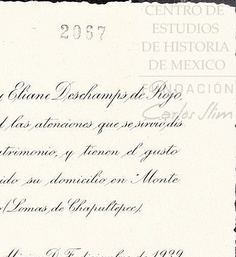 2067
CENTRO DE
ESTUDIOS
DE HISTORIA
DE MEXICO
FUNDACIÓN
Carlos Slim
y Eliane Deschamps de Rojo,
las atenciones que se sirvió dis
atrimonio, y tienen el gusto
ido su domicilio en Monte
(Lomas de Chapultepec),